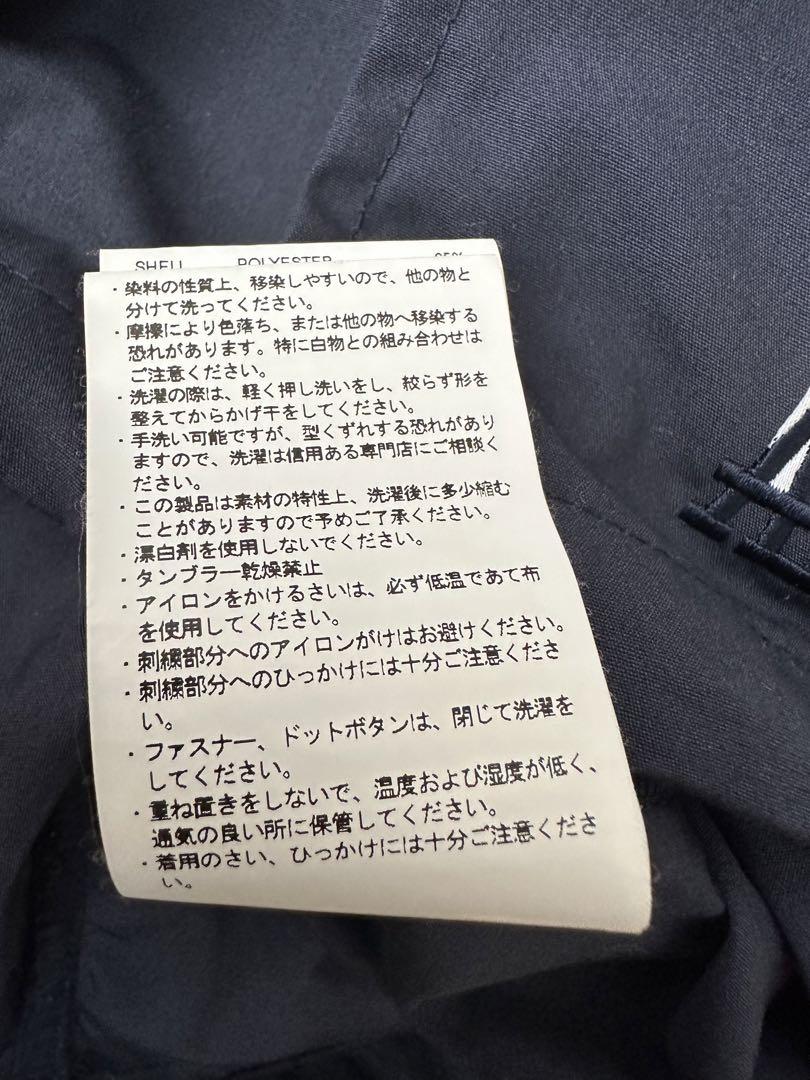 SHELL POLYESTER
・染料の性質上、移染しやすいので、他の物と
分けて洗ってください。
・摩擦により色落ち、または他の物へ移染する
恐れがあります。特に白物との組み合わせは
ご注意ください。
・洗濯の際は、軽く押し洗いをし、絞らず形を
整えてからかげ干をしてください。
・手洗い可能ですが、型くずれする恐れがあり
ますので、洗濯は信用ある専門店にご相談く
ださい。
・この製品は素材の特性上、洗濯後に多少縮む
ことがありますので予めご了承ください。
・漂白剤を使用しないでください。
・タンブラー乾燥禁止
・アイロンをかけるさいは、必ず低温であて布
を使用してください。
・刺繍部分へのアイロンがけはお避けください。
・刺繍部分へのひっかけには十分ご注意くださ
い。
・ファスナー、ドットボタンは、閉じて洗濯を
してください。
・重ね置きをしないで、温度および湿度が低く、
通気の良い所に保管してください。
・着用のさい、ひっかけには十分ご注意くださ
い。